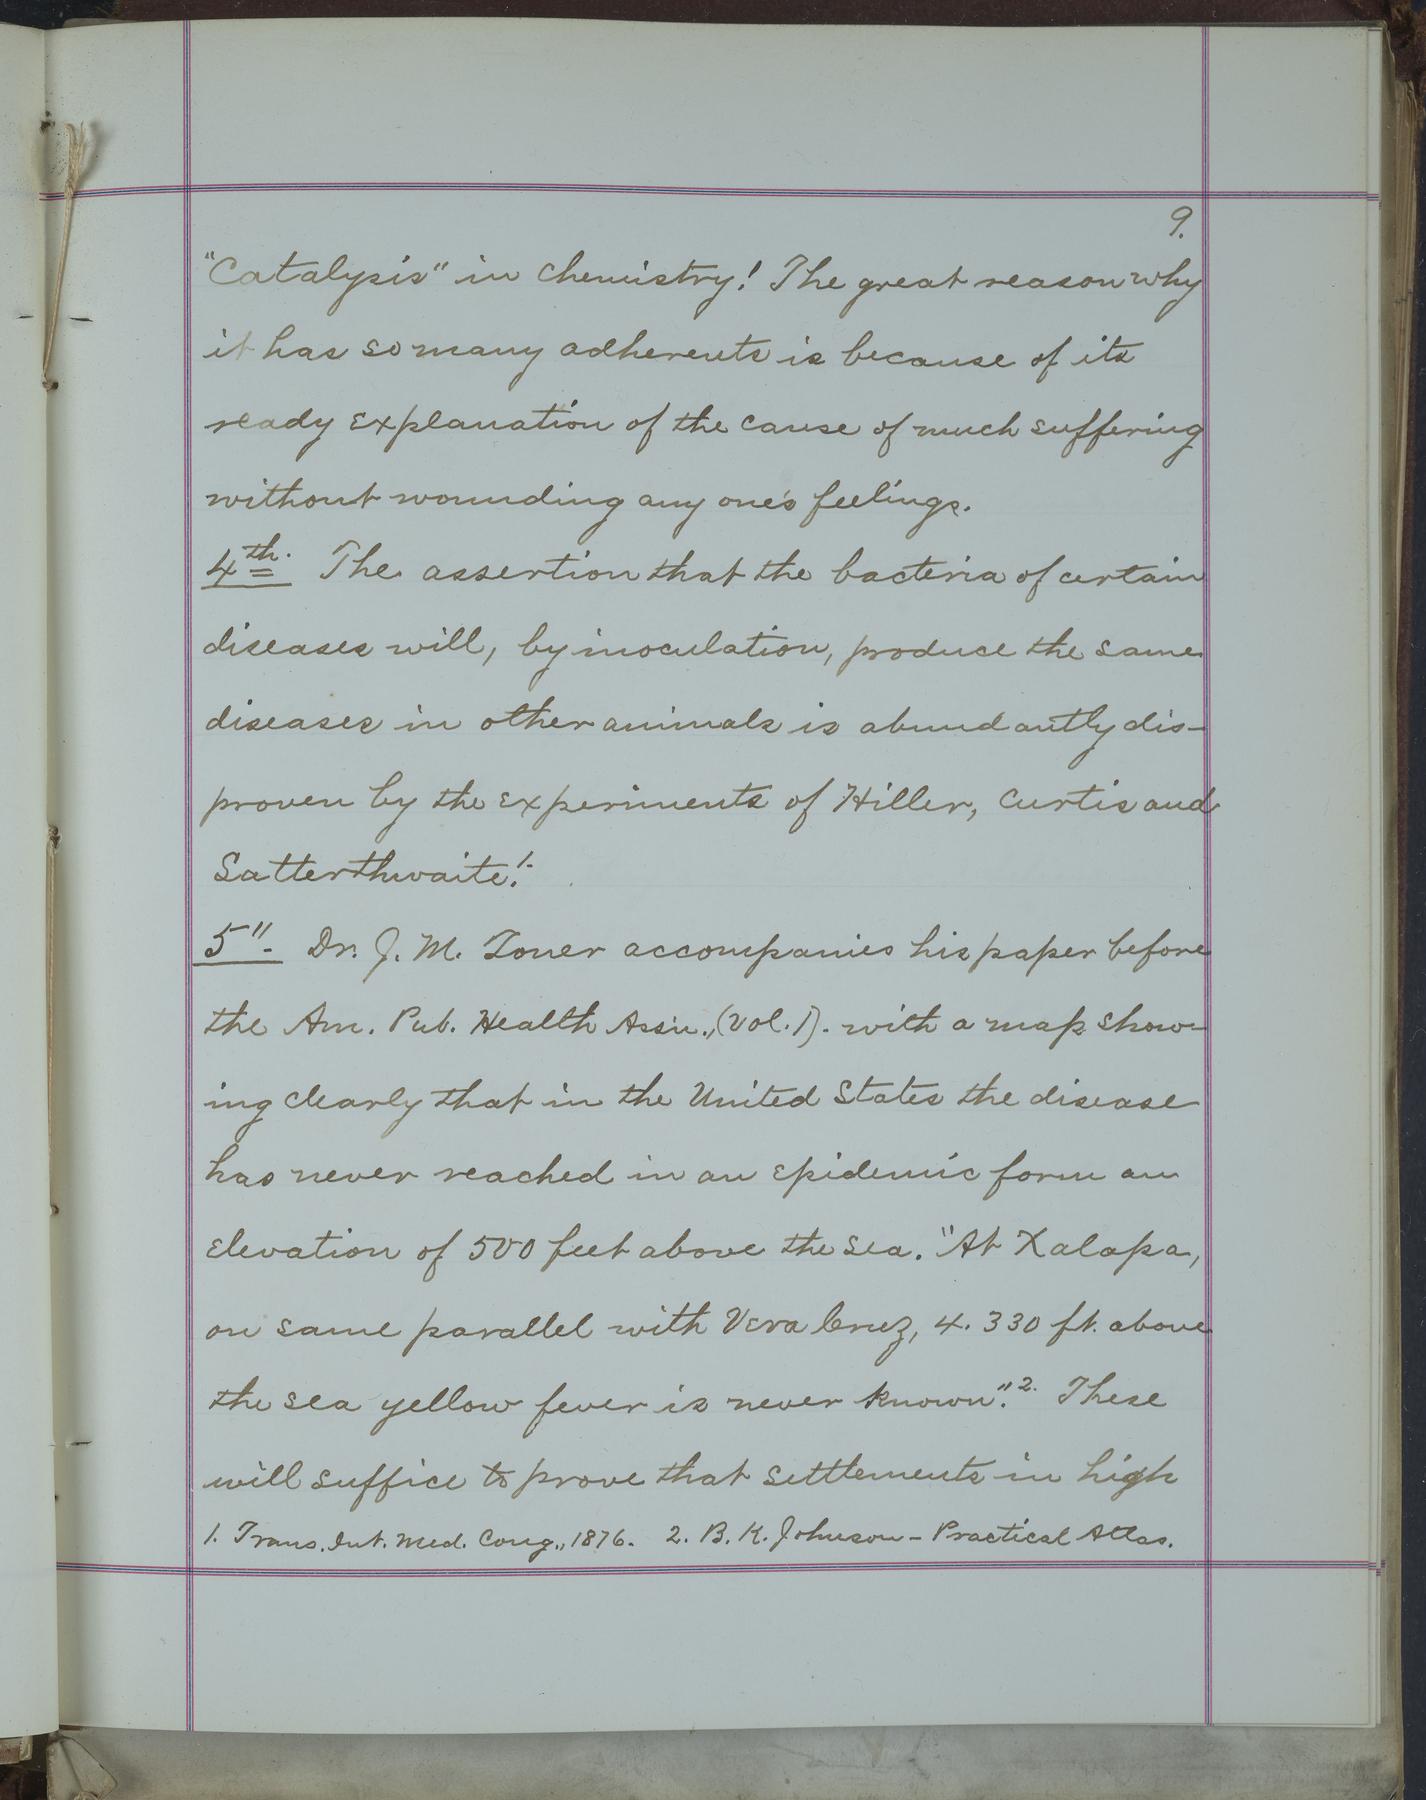 9.
"Catalysis" in Chemistry! The great reason why
it has so many adherents is because of its
ready explanation of the cause of much suffering
without wounding any one's feelings.
4th. The assertion that the bacteria of certain
diseases will, by inoculation, produce the same
diseases in other animals is abundantly dis-
proven by the experiments of Hiller, Curtis and
Satterthwaite.1.
5"- Dr. J. M. Toner accompanies his paper before
the Am. Pub. Health Assn., (Vol. 1). with a map show-
ing clearly that in the United States the disease
has never reached in an epidemic form an
elevation of 500 feet above the sea. "At Xalapa,
on same parallel with Vera Cruz, 4.330 ft. above
the sea yellow fever is never known."2. These
will suffice to prove that settlements in high
1. Trans. Int. Med. Cong., 1876. 2. B. K. Johnson - Practical Atlas.